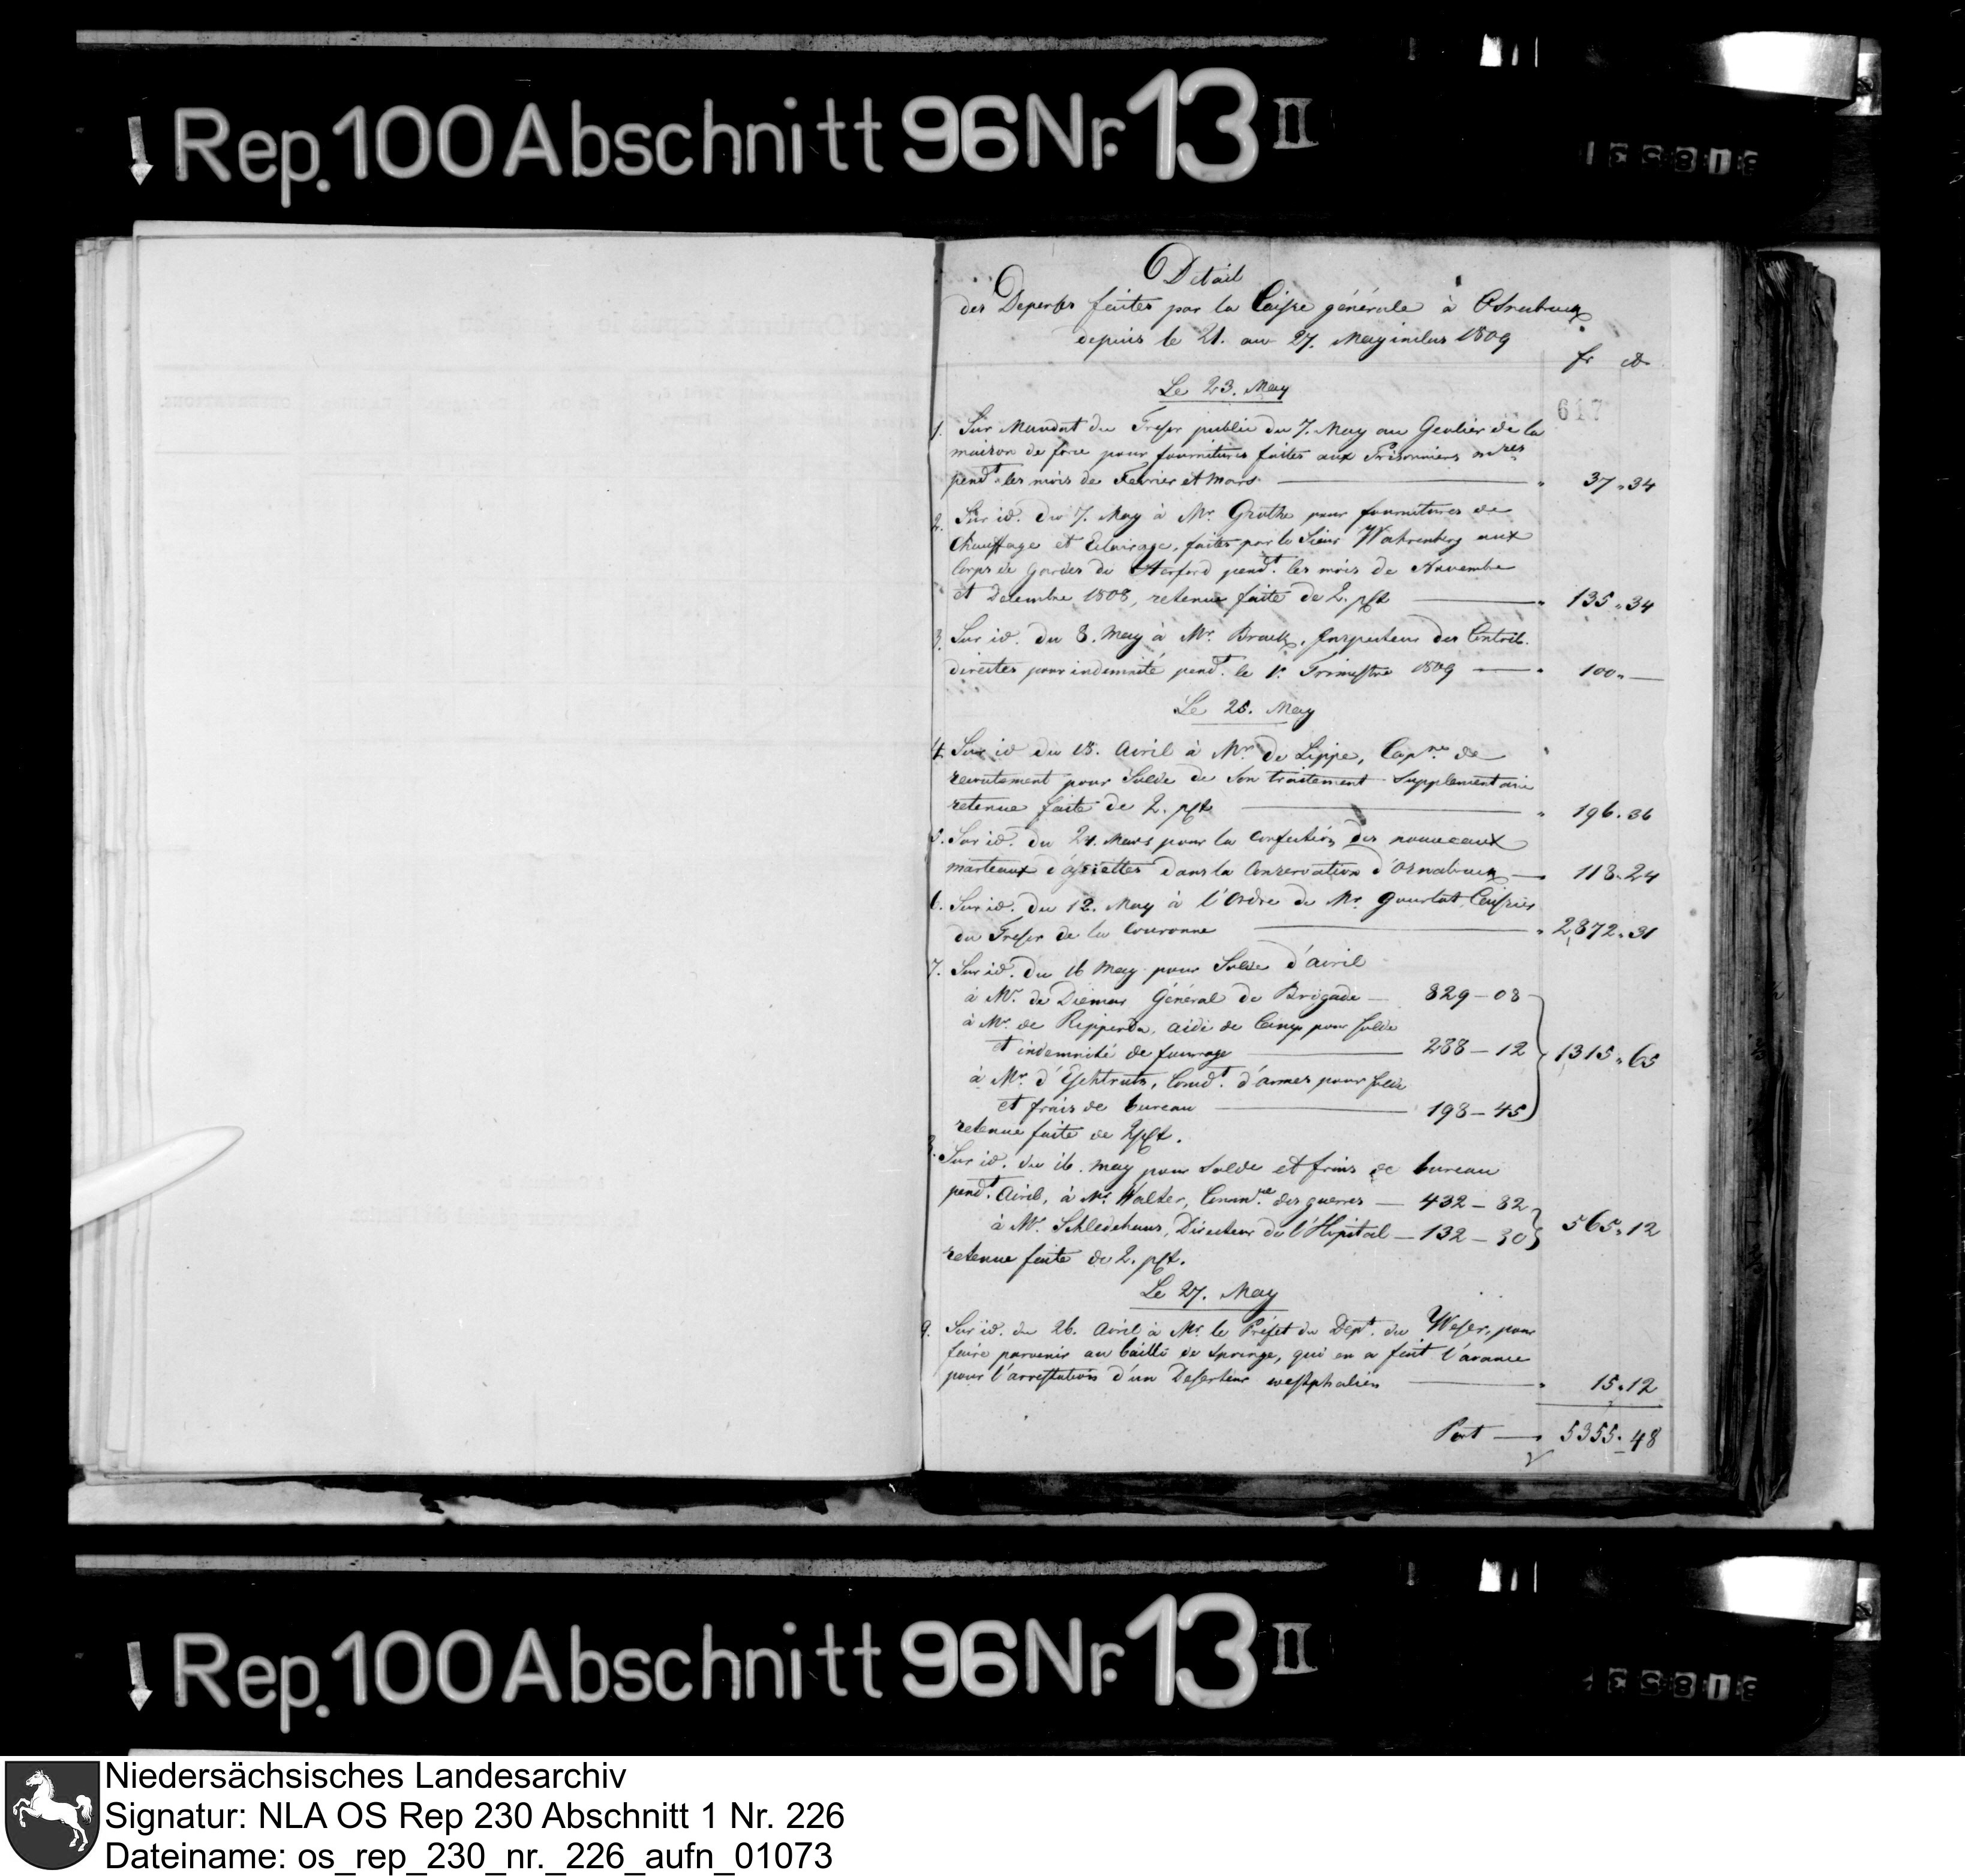 Rep. 100 Abschnitt 96 Nr. 13 II
Detail
des Depenses faites par la Caisse générale à Osnabruck
depuis le 21. au 27. May inclus 1809
fr
617
Le 23. May
1. Sur Mandat du Tresor public du 7. May au Geolier de la
maison de force pour fournitures faites aux Prisonniers
pendt. les mois de Fevrier et Mars — " 37 " 34
2. Sur id. du 7. May à Mr. Grothe pour fournitures de
Chauffage et Eclairage, faites par le Sieur Wahrenberg aux
Corps de Gardes de Herford pendt. les mois de Novembre
et Decembre 1808, retenue faite de 2. pCt — " 135 " 34
3. Sur id. du 8. May à Mr. Brack, Inspecteur des Contrib.
directes pour indemnité pendt. le 1r. Trimestre 1809 — " 100 " —
Le 25. May
4. Sur id du 18. Avril à Mr. de Lippe, Capne. de
recrutement pour Solde de son traitement supplementaire
retenue faite de 2. pCt — " 196 . 36
5. Sur id. du 21. Mars pour la confection des nouveaux
marteaux d'assiettes dans la Conservation d'Osnabruck — 118 . 24
6. Sur id. du 12. May à l'Ordre de Mr. Caissier
du Tresor de la Couronne — " 2,872 . 31
7. Sur id. du 16 May pour Solde d'avril
à Mr. de Diemar Général de Brigade — 829 — 08
à Mr. de Ripperda, aide de Camp pour solde
et indemnité de fourrage — 288 — 12 } 1,315 " 65
à Mr. d'Eschtruth, Comdt. d'armes pour solde
et frais de bureau — 198 — 45
retenue faite de 2 pCt.
8. Sur id. du 16. May pour Solde et frais de bureau
pendt. Avril, à Mr. Walter, Commre. des guerres — 432 — 82
à Mr. Schledehaus, Directeur de l'Hôpital — 132 — 30 } 565 " 12
retenue faite de 2. pCt.
Le 27. May
9. Sur id. du 26. Avril à Mr. le Préfet du Dept. du Weser, pour
faire parvenir au bailli de Springe, qui en a fait l'avance
pour l'arrestation d'un Deserteur westphalien — " 15 " 12
Port — " 5355 . 48
Rep. 100 Abschnitt 96 Nr. 13 II
Niedersächsisches Landesarchiv
Signatur: NLA OS Rep 230 Abschnitt 1 Nr. 226
Dateiname: os_rep_230_nr._226_aufn_01073